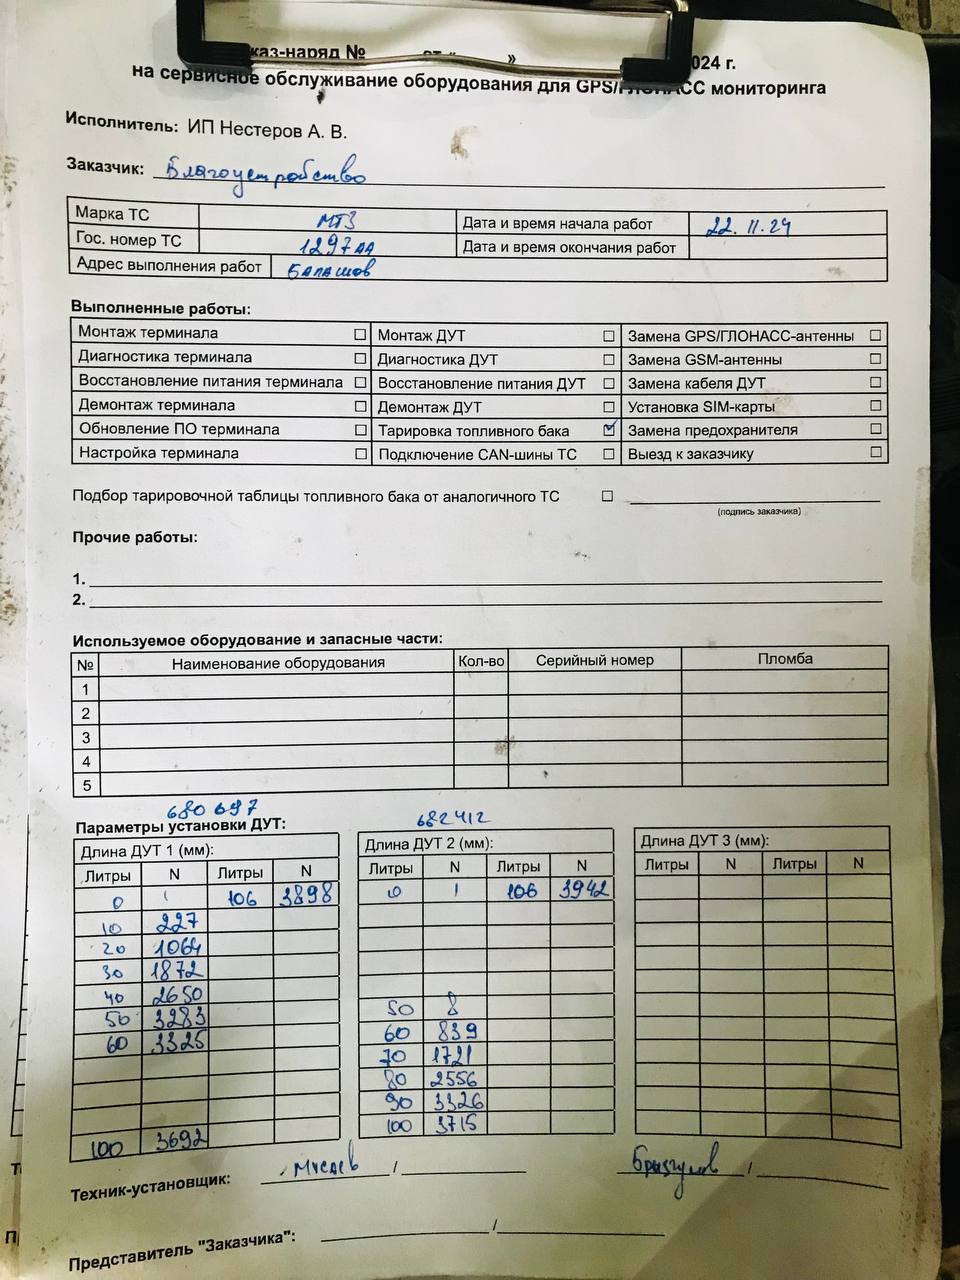 каз-наряд № от “ ” 024 г.
на сервисное обслуживание оборудования для GPS/ГЛОНАСС мониторинга
Исполнитель: ИП Нестеров А. В.
Заказчик: Благоустройство
Марка ТС МТЗ Дата и время начала работ 22.11.24
Гос. номер ТС 1297АА Дата и время окончания работ
Адрес выполнения работ Балашов
Выполненные работы:
Монтаж терминала ☐ Монтаж ДУТ ☐ Замена GPS/ГЛОНАСС-антенны ☐
Диагностика терминала ☐ Диагностика ДУТ ☐ Замена GSM-антенны ☐
Восстановление питания терминала ☐ Восстановление питания ДУТ ☐ Замена кабеля ДУТ ☐
Демонтаж терминала ☐ Демонтаж ДУТ ☐ Установка SIM-карты ☐
Обновление ПО терминала ☐ Тарировка топливного бака ☑ Замена предохранителя ☐
Настройка терминала ☐ Подключение CAN-шины ТС ☐ Выезд к заказчику ☐
Подбор тарировочной таблицы топливного бака от аналогичного ТС ☐
(подпись заказчика)
Прочие работы:
1.
2.
Используемое оборудование и запасные части:
№ Наименование оборудования Кол-во Серийный номер Пломба
1
2
3
4
5
680697 682412
Параметры установки ДУТ:
Длина ДУТ 1 (мм): Длина ДУТ 2 (мм): Длина ДУТ 3 (мм):
Литры N Литры N Литры N Литры N Литры N Литры N
0 1 106 3898 0 1 106 3942
10 227
20 1064
30 1872
40 2650
50 3283 50 8
60 3325 60 839
70 1721
80 2556
90 3326
100 3692 100 3715
Техник-установщик: / /
Представитель "Заказчика": /